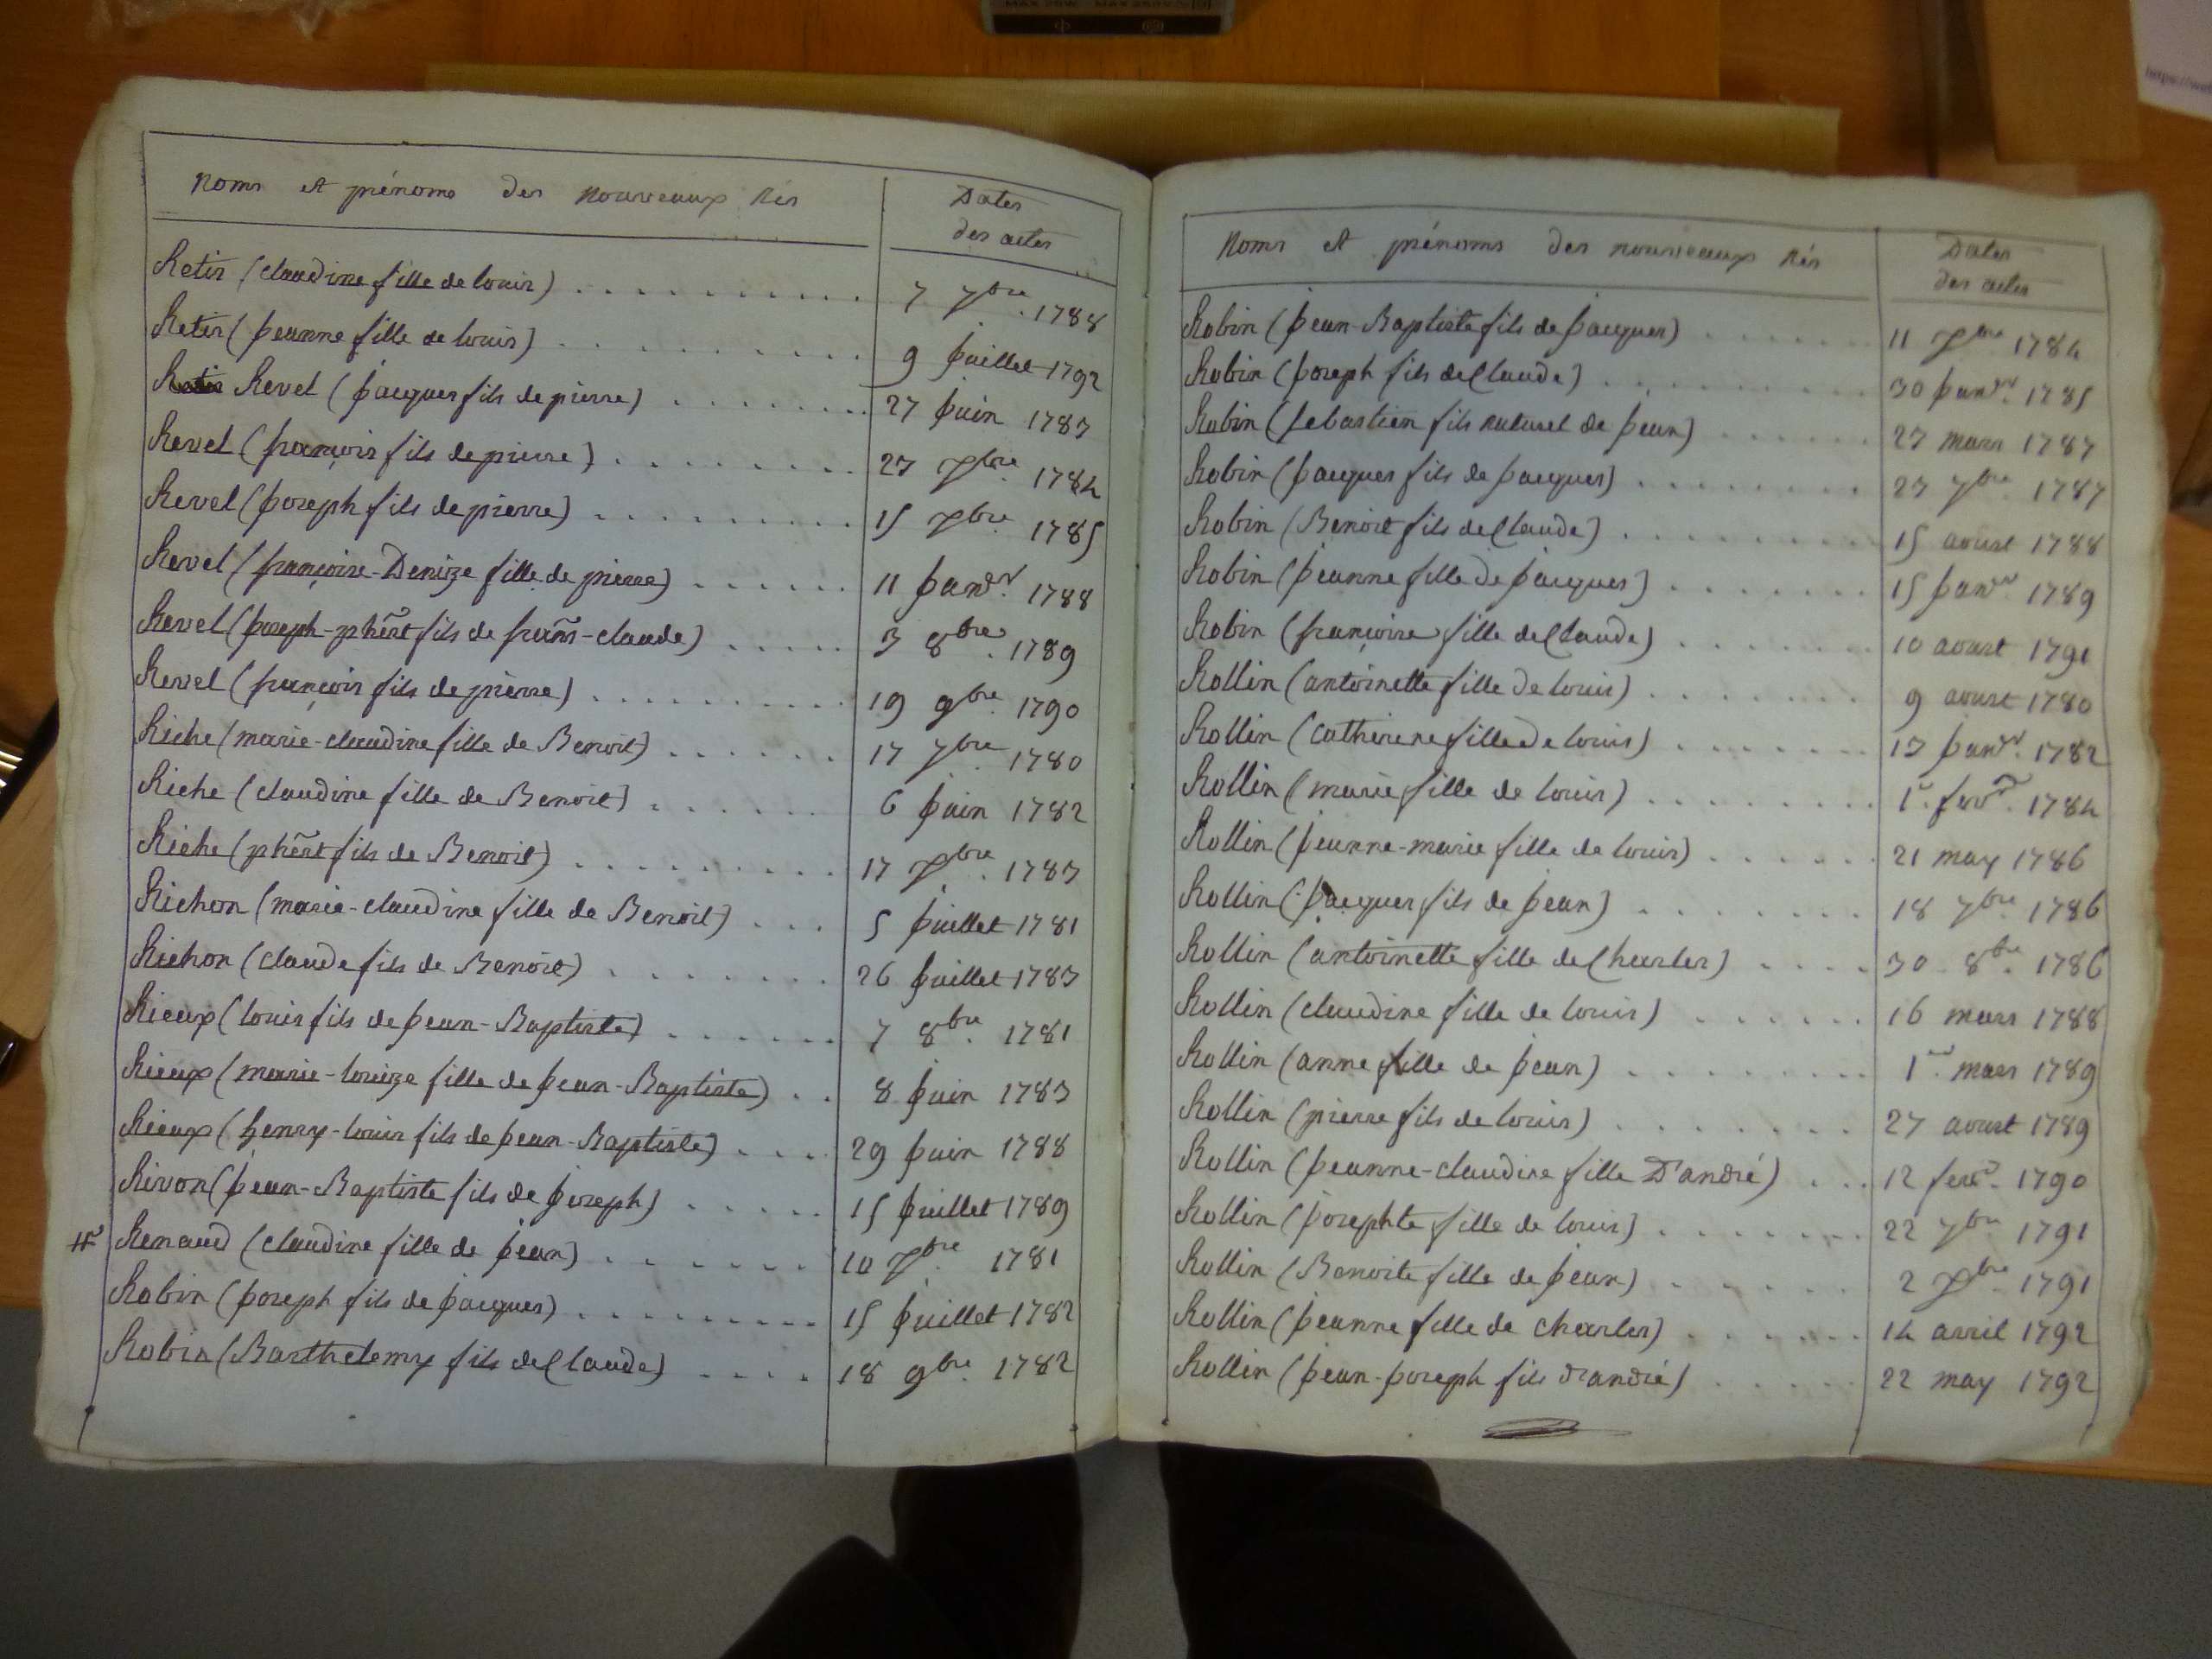 Noms et prénoms des nouveaux nés
Dates
des actes
Retis (claudine fille de louis) .......... 7 7bre. 1788
Retis (Jeanne fille de louis) .......... 9 Juillet 1792
Revel (Jacques fils de pierre) ........ 27 Juin 1783
Revel (françois fils de pierre) ........ 23 Xbre. 1784
Revel (Joseph fils de pierre) ......... 15 Xbre. 1785
Revel (françoise-Denize fille de pierre) ...... 11 Janvr. 1788
Revel (Joseph-phert fils de frans-claude) ..... 3 8bre. 1789
Revel (françois fils de pierre) .......... 19 9bre. 1790
Riche (marie-claudine fille de Benoit) ...... 17 7bre. 1780
Riche (claudine fille de Benoit) ...... 6 Juin 1782
Riche (phert fils de Benoit) ......... 17 Xbre. 1783
Richon (marie-claudine fille de Benoit) ... 5 Juillet 1781
Richon (claude fils de Benoit) ....... 26 Juillet 1783
Rieux (louis fils de Jean-Baptiste) ...... 7 8bre. 1781
Rieux (marie-louize fille de Jean-Baptiste) .. 8 Juin 1783
Rieux (henry-louis fils de Jean-Baptiste) .... 29 Juin 1788
Rivon (Jean-Baptiste fils de Joseph) ..... 15 Juillet 1789
# Renaud (claudine fille de Jean) ...... 10 Xbre. 1781
Robin (Joseph fils de Jacques) ......... 15 Juillet 1782
Robin (Barthelemy fils de Claude) .... 18 9bre. 1782
Noms et prénoms des nouveaux nés
Dates
des actes
Robin (Jean-Baptiste fils de Jacques) ....... 11 Xbre 1784
Robin (Joseph fils de Claude) .......... 30 Janvr. 1785
Robin (Sebastien fils naturel de Jean) ...... 23 mars 1787
Robin (Jacques fils de Jacques) ........ 23 7bre. 1787
Robin (Benoit fils de Claude) ......... 15 aoust 1788
Robin (Jeanne fille de Jacques) ....... 15 Janvr. 1789
Robin (françoise fille de Claude) ....... 10 aoust 1791
Rollin (antoinette fille de louis) ........ 9 aoust 1780
Rollin (catherine fille de louis) ....... 13 Janvr. 1782
Rollin (marie fille de louis) ........ 1r. fevr. 1784
Rollin (Jeanne-marie fille de louis) ...... 21 may 1786
Rollin (Jacques fils de Jean) ........ 18 7bre. 1786
Rollin (antoinette fille de Charles) .... 30 8bre. 1786
Rollin (claudine fille de louis) ...... 16 mars 1788
Rollin (anne fille de Jean) ......... 1er. mars 1789
Rollin (pierre fils de louis) ........ 27 aoust 1789
Rollin (Jeanne-claudine fille D'andré) ... 12 fevr. 1790
Rollin (Josephte fille de louis) ....... 22 7bre 1791
Rollin (Benoite fille de Jean) ...... 2 Xbre. 1791
Rollin (Jeanne fille de charles) ...... 14 avril 1792
Rollin (Jean-Joseph fils d'andré) ..... 22 may 1792